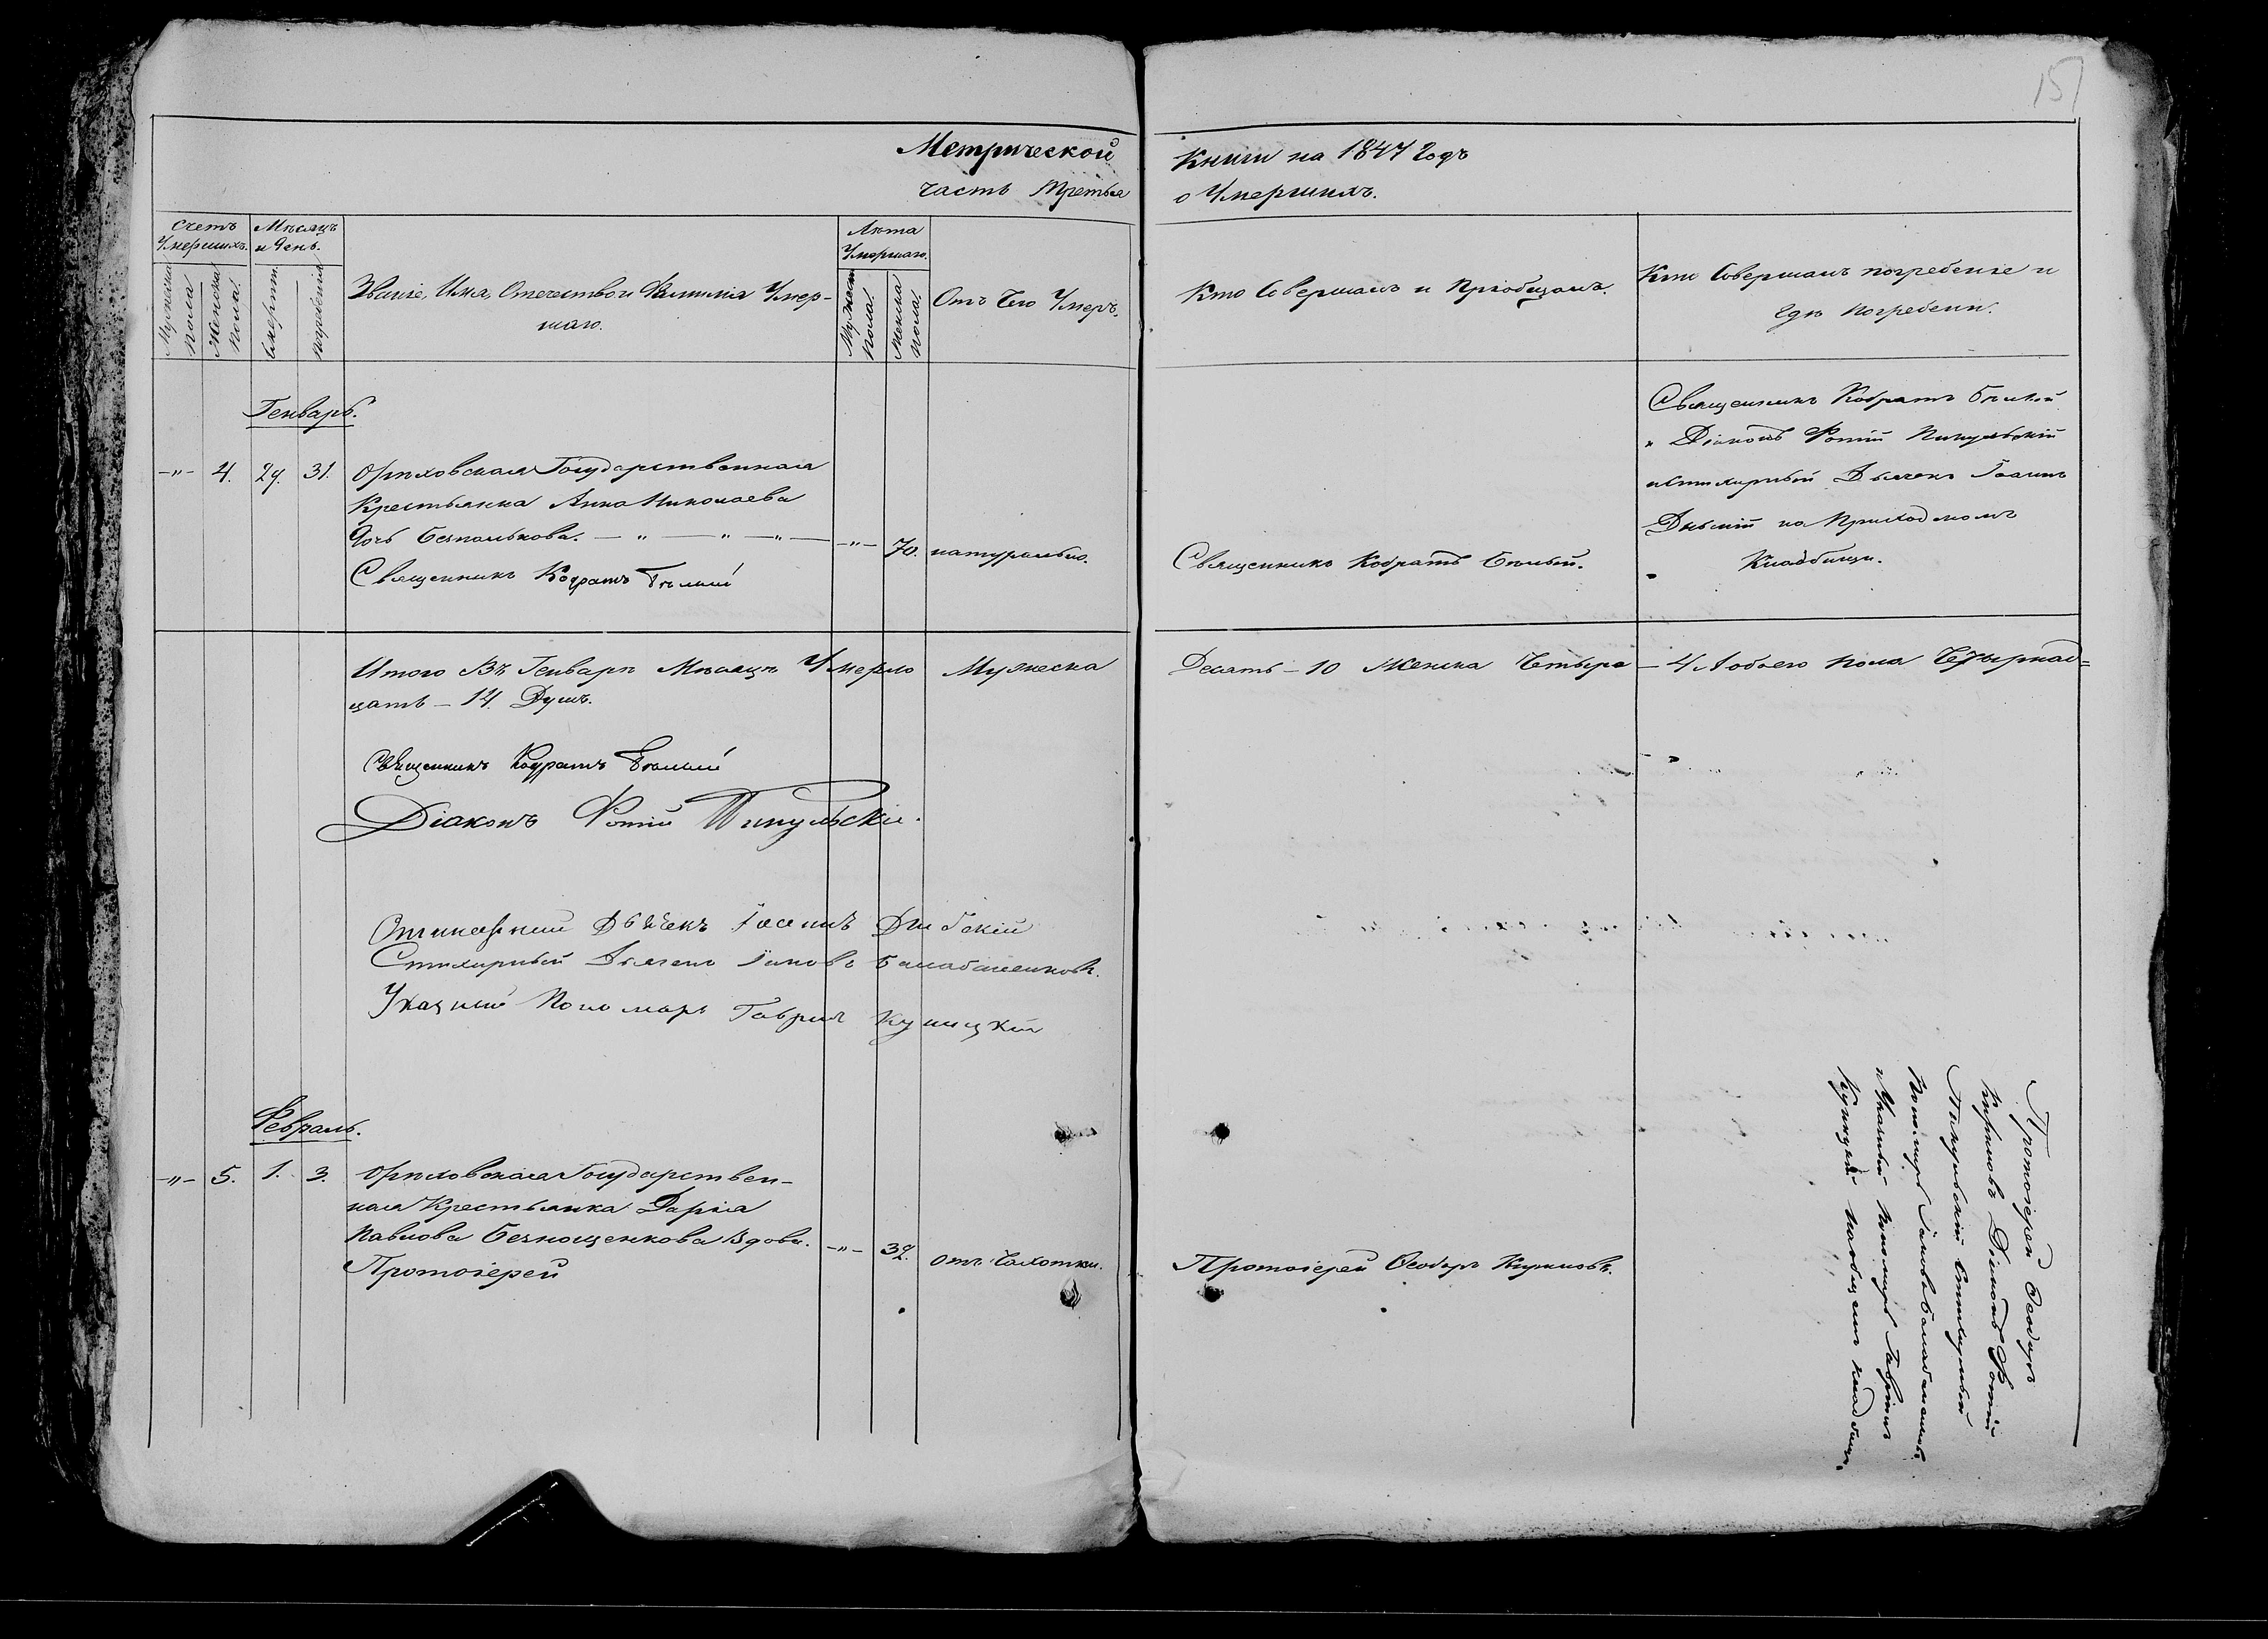 151
Метрической Книги на 1847 Годъ
часть третья о Умершихъ.
Счетъ Умершихъ.
Мужеска пола
Женска пола.
Мѣсяцъ и день.
Смерти.
погребенія
Званіе, Имя, Отечество и Фамилія Умер-
шаго.
Лѣта Умершаго.
Мужеска пола.
Женска пола.
Отъ Чего Умеръ.
Кто Совершалъ и Пріобщалъ.
Кто Совершалъ погребеніе и
гдѣ погребенъ.
Генварь.
-"- 4. 29. 31.
Орѣховская Государственная
Крестьянка Анна Николаева
дочь -"- 70. натурально.
Священникъ Кодратъ Бѣлый
Священникъ Кодратъ Бѣлый.
Священникъ Кодратъ Бѣлый
Діаконъ Фотій Пикульскій
и Стихарный Дьячекъ Іоаннъ
на Приходномъ
Кладбищи.
Итого Въ Генварѣ Мѣсяцѣ Умерло Мужеска Десять – 10 Женска Четыре – 4 А обоего пола Четырнад=
цать – 14. Душъ.
Священникъ Кодратъ Бѣлый
Діаконъ Фотій Пикульскій.
Стихарный Дьячекъ Іоаннъ
Стихарный Дьячекъ Іаковъ
Указный Пономарь Гавриилъ Куницкій
Февраль.
-"- 5. 1. 3.
Орѣховская Государствен-
ная Крестьянка Дарія
Павлова Безнощенкова Вдова. -"- 32. отъ Чахотки.
Протоіерей
Протоіерей Ѳеодоръ Кириловъ.
Протоіерей Ѳеодоръ
Кириловъ Діаконъ Фотій
Пикульскій Стихарный
Пономарь Іаковъ
и Указный Пономарь Гавріилъ
Куницкій на общемъ кладбищѣ.